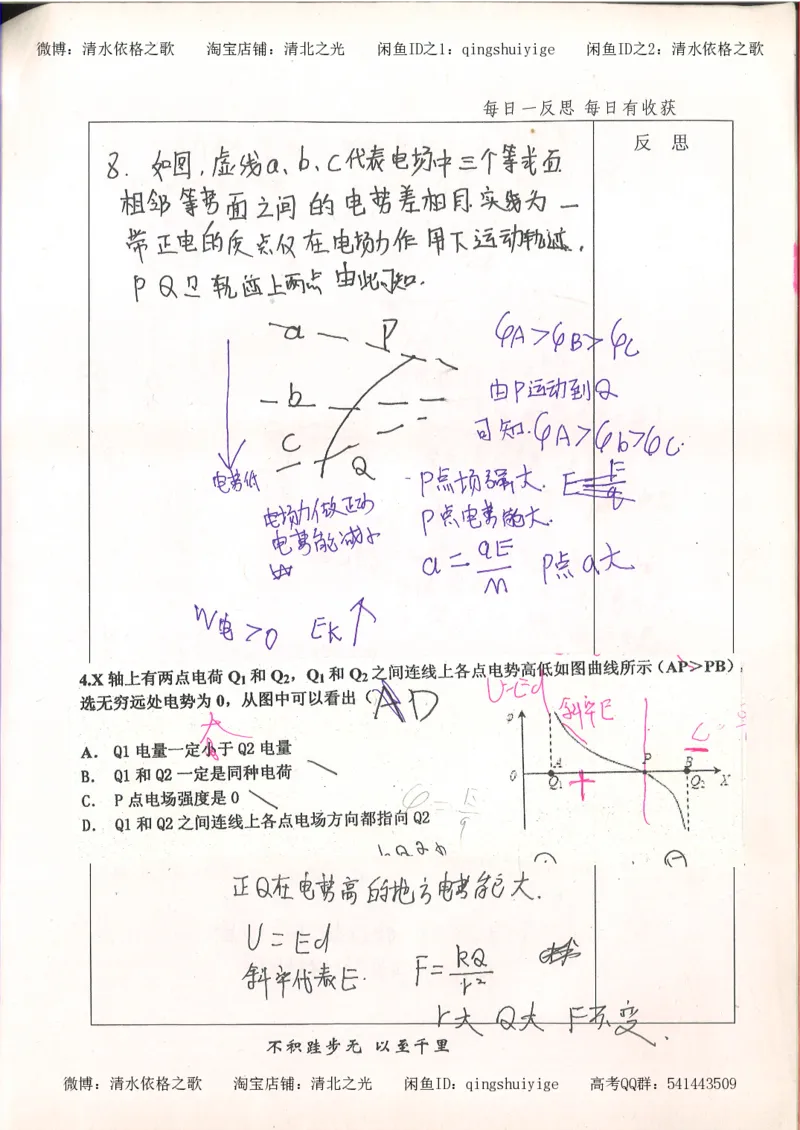 微博：清水依格之歌 淘宝店铺：清北之光 闲鱼ID之1：qingshuiyige 闲鱼ID之2：清水依格之歌
每日一反思 每日有收获
反 思
8. 如图，虚线a、b、c代表电场中三个等势面
相邻等势面之间的电势差相同.实线为一
带正电的质点仅在电场力作用下运动轨迹，
P Q 轨迹上两点 由此可知.
a P
b
C
Q
电势低
电场力做正功
电势能减小
W电>0 EK↑
φA>φB>φC
由P运动到Q
可知.φA>φb>φC.
P点场强大. E=F/q
P点电势能大.
a=qE/m P点a大
4.X 轴上有两点电荷 Q1 和 Q2，Q1 和 Q2 之间连线上各点电势高低如图曲线所示（AP＞PB），
选无穷远处电势为 0，从图中可以看出（ AD
U=Ed
斜率E
大
A. Q1 电量一定小于 Q2 电量
B. Q1 和 Q2 一定是同种电荷
C. P 点电场强度是 0
D. Q1 和 Q2 之间连线上各点电场方向都指向 Q2
φ=E/q
φ
0 A P B X
Q1 + Q2
正Q在电势高的地方电势能大.
U=Ed
斜率代表E.
F=kQ/r²
r大 Q大 F不变.
不积跬步无 以至千里
微博：清水依格之歌 淘宝店铺：清北之光 闲鱼ID：qingshuiyige 高考QQ群：541443509